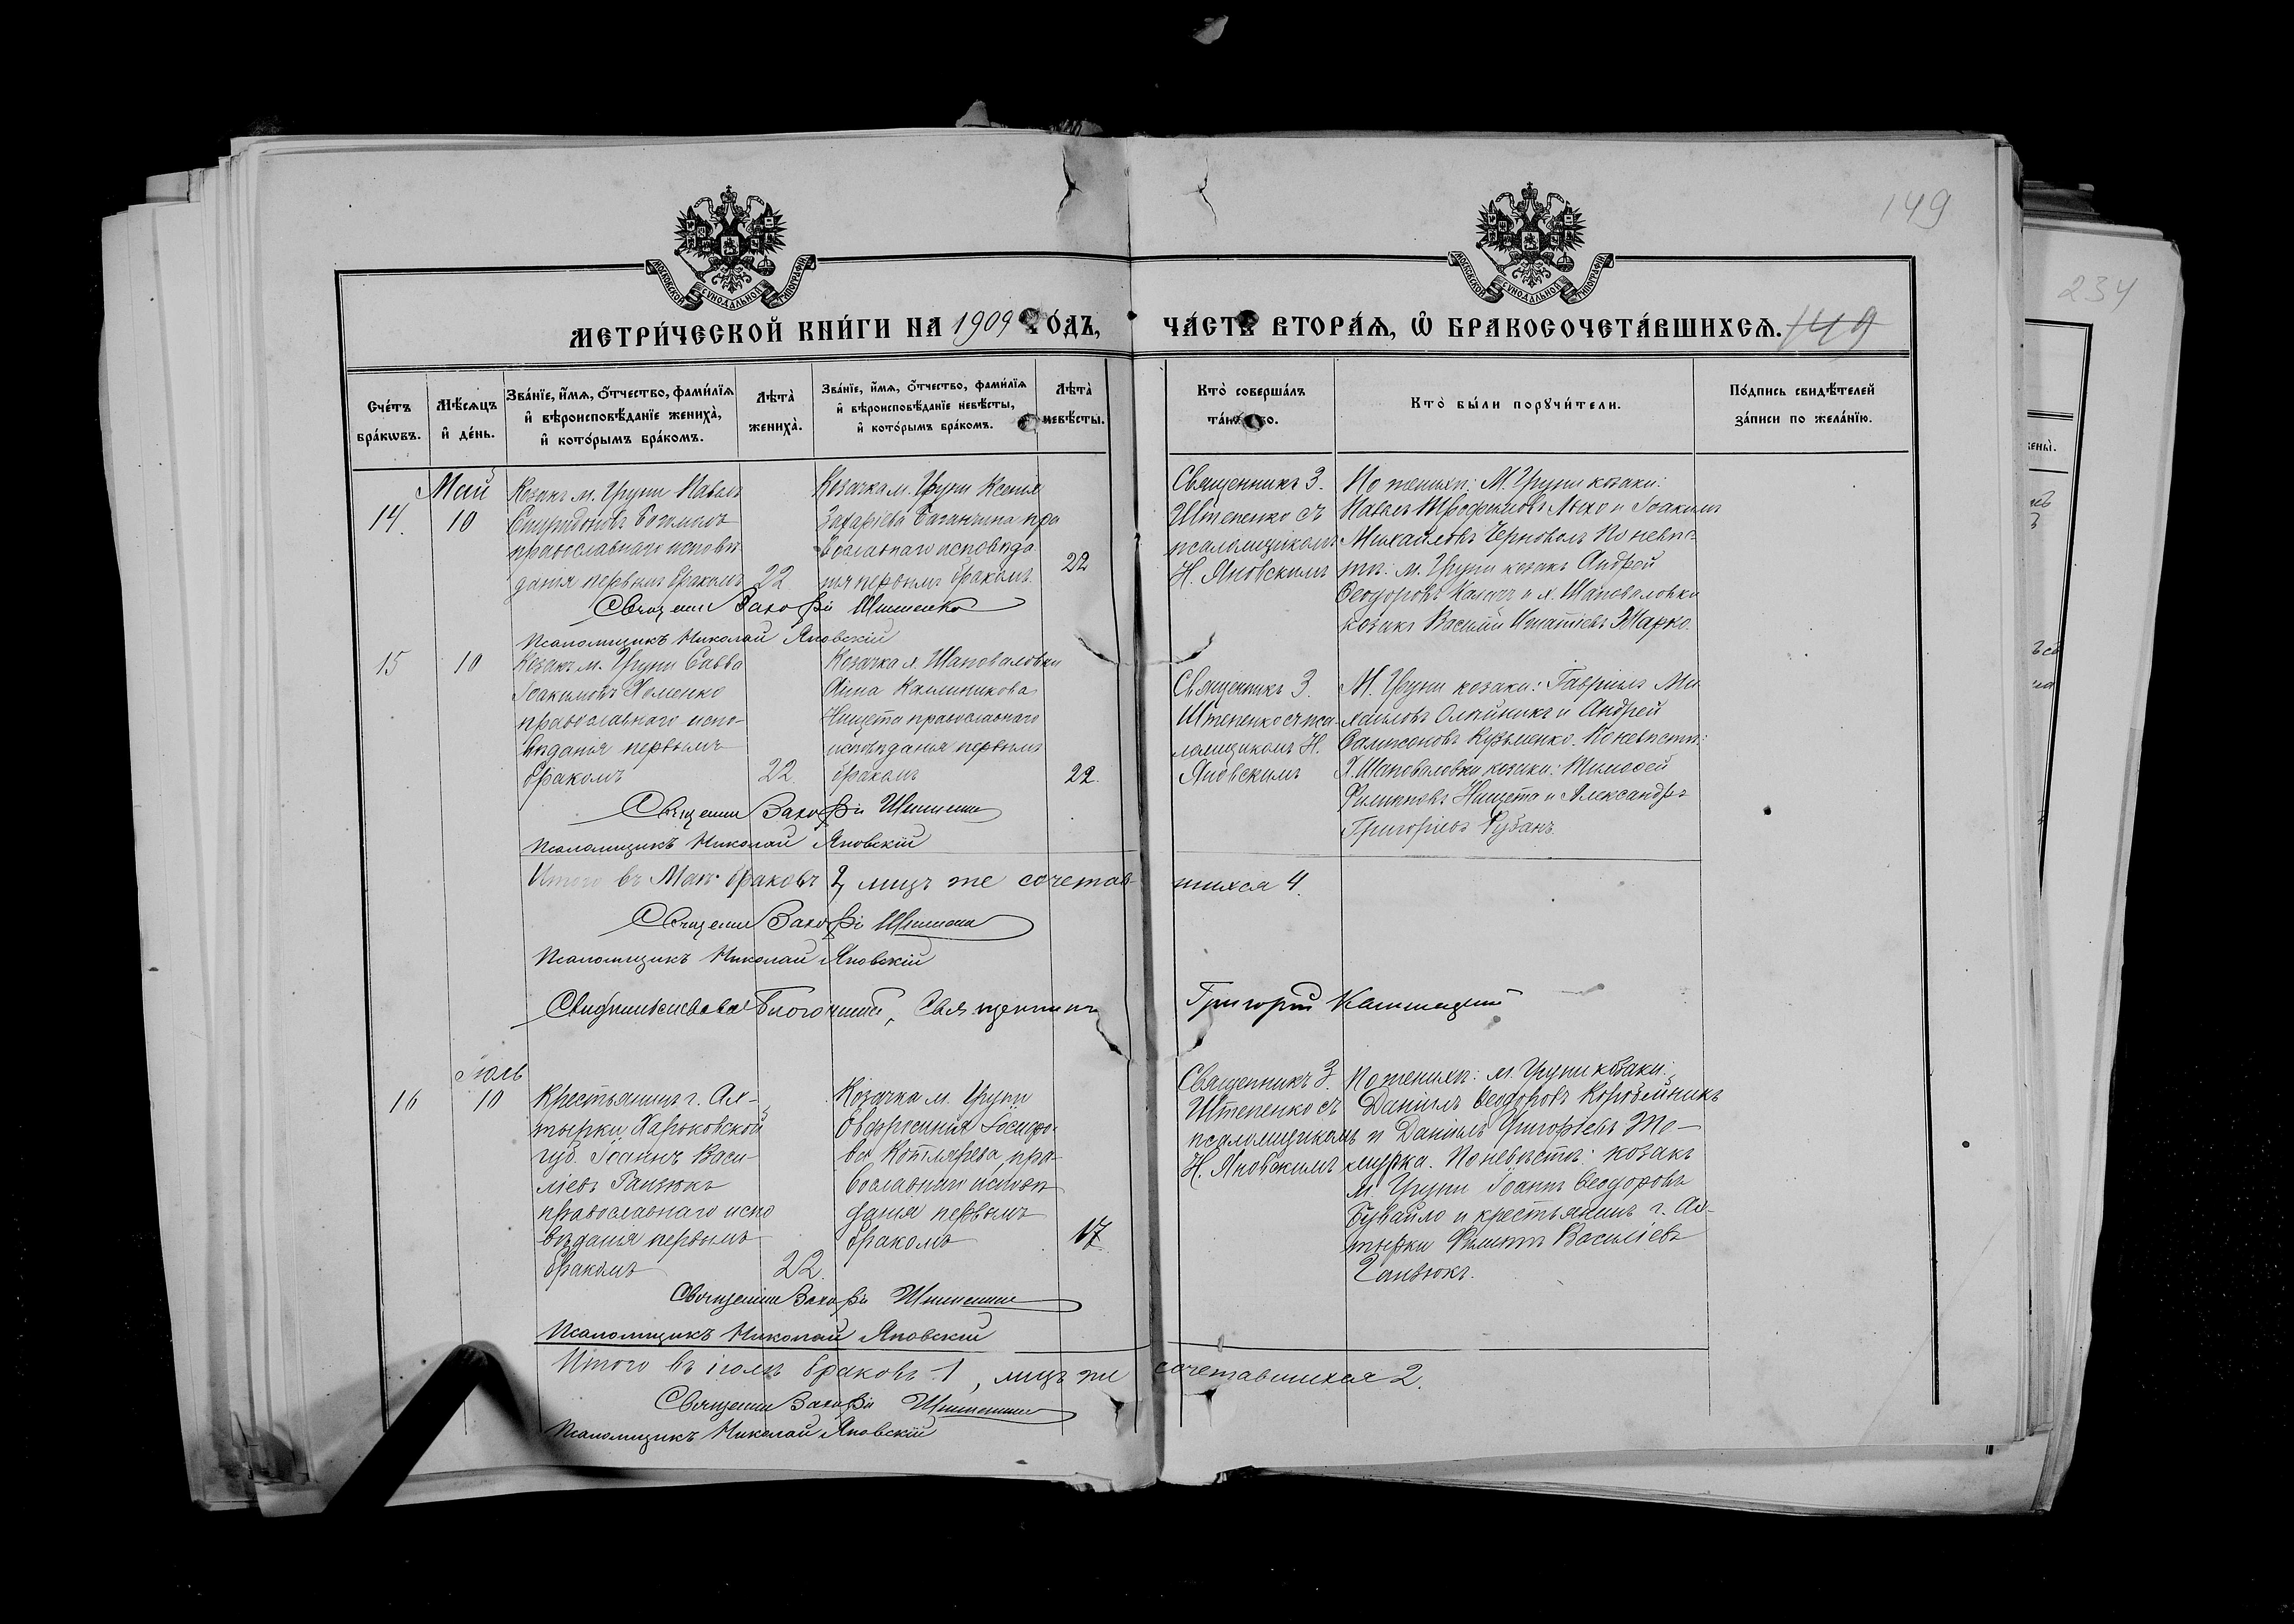 149
234
МОСКОВСКОЙ СѴНОДАЛЬНОЙ ТИПОГРАФІИ
МОСКОВСКОЙ СѴНОДАЛЬНОЙ ТИПОГРАФІИ
МЕТРИ́ЧЕСКОЙ КНИ́ГИ НА 1909 ГО́ДЪ,
ЧА́СТЬ ВТОРА́Ѧ, Ѡ҆ БРАКОСОЧЕТА́ВШИХСѦ. 149
Сче́тъ бра́кѡвъ.
Мѣ́сѧцъ и҆ де́нь.
Зва́нїе, и҆́мѧ, ѻ҆́тчество, фами́лїѧ и҆ вѣроисповѣ́данїе жениха̀, и҆ кото́рымъ бра́комъ.
Лѣта̀ жениха̀.
Зва́нїе, и҆́мѧ, ѻ҆́тчество, фами́лїѧ и҆ вѣроисповѣ́данїе невѣ́сты, и҆ кото́рымъ бра́комъ.
Лѣта̀ невѣ́сты.
Кто̀ соверша́лъ
Кто̀ бы́ли порꙋчи́тели.
По́дпись свидѣ́телей за́писи по жела́нїю.
Май
14.
10
Козакъ м. Груни Павелъ
Спиридоновъ
православнаго исповѣ-
данія первымъ бракомъ
22
Козачка м. Груни Ксенія
Захаріева пра
вославнаго исповѣда
нія первымъ бракомъ
22
Священникъ З.
Штепенко съ
псаломщикомъ
Н. Яновскимъ
По женихѣ: М. Груни козаки:
Павелъ Трофимовъ и Іоакимъ
Михаиловъ Черноволъ По невѣс-
тѣ: м. Груни козакъ Андрей
Ѳеодоровъ и х. Шаповаловки
козакъ Василій Игнатіевъ
Священн Захарій Штепенко
Псаломщикъ Николай Яновскій
15
10
Козакъ м. Груни Савва
Іоакимовъ Хоменко
православнаго испо-
вѣданія первымъ
бракомъ
22
Козачка х. Шаповаловки
Анна Калиникова
Нищета православнаго
исповѣданія первымъ
бракомъ
22.
Священникъ З.
Штепенко съ пса-
ломщикомъ Н.
Яновскимъ
М. Груни козаки: Гавріилъ Ми
хаиловъ Олейникъ и Андрей
Сампсоновъ Кузьменко. По невѣстѣ:
Х. Шаповаловки козаки: Тимоѳей
Филиповъ Нищета и Александръ
Григоріевъ Рубанъ.
Священн Захарій Штепенко
Псаломщикъ Николай Яновскій
Итого въ Маѣ браковъ 2, лицъ же сочетав-
шихся 4.
Священн Захарій Штепенко
Псаломщикъ Николай Яновскій
Свидѣтельствовалъ Благочинный, Священникъ
Григорій
Іюль
16
10
Крестьянинъ г. Ах-
тырки, Харьковской
губ. Іоаннъ Васи-
ліевъ Ганзюкъ
православнаго испо
вѣданія первымъ
бракомъ
22.
Козачка м. Груни
Евфросинія Іосифо-
ва Котлярева, пра-
вославнаго исповѣ
данія первымъ
бракомъ
17
Священникъ З.
Штепенко съ
псаломщикомъ
Н. Яновскимъ
По женихѣ: м. Груни козаки:
Даніилъ Ѳеодоровъ Коробейникъ
и Даніилъ Григоріевъ
По невѣстѣ: козакъ
м. Груни Іоаннъ Ѳеодоровъ
Бувайло и крестьянинъ г. Ах-
тырки Филиппъ Василіевъ
Ганзюкъ.
Священникъ Захарій Штепенко
Псаломщикъ Николай Яновскій
Итого въ іюлѣ браковъ 1, лицъ же сочетавшихся 2.
Священн Захарій Штепенко
Псаломщикъ Николай Яновскій